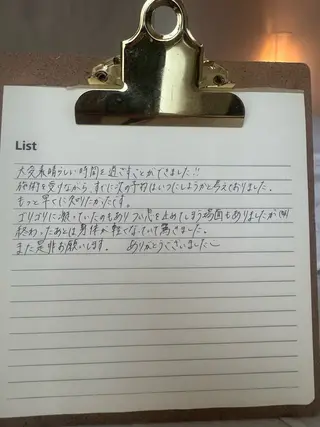 List
大変素晴らしい時間を過ごすことができました!!
施術を受けながら、すでに次の予約はいつにしようかと考えておりました。
もっと早くに知りたかったです。
ゴリゴリに凝っていたのもあり つい息を止めてしまう場面もありましたが(笑)
終わったあとは身体が軽くなっていて驚きました。
また是非お願いします。 ありがとうございました〜